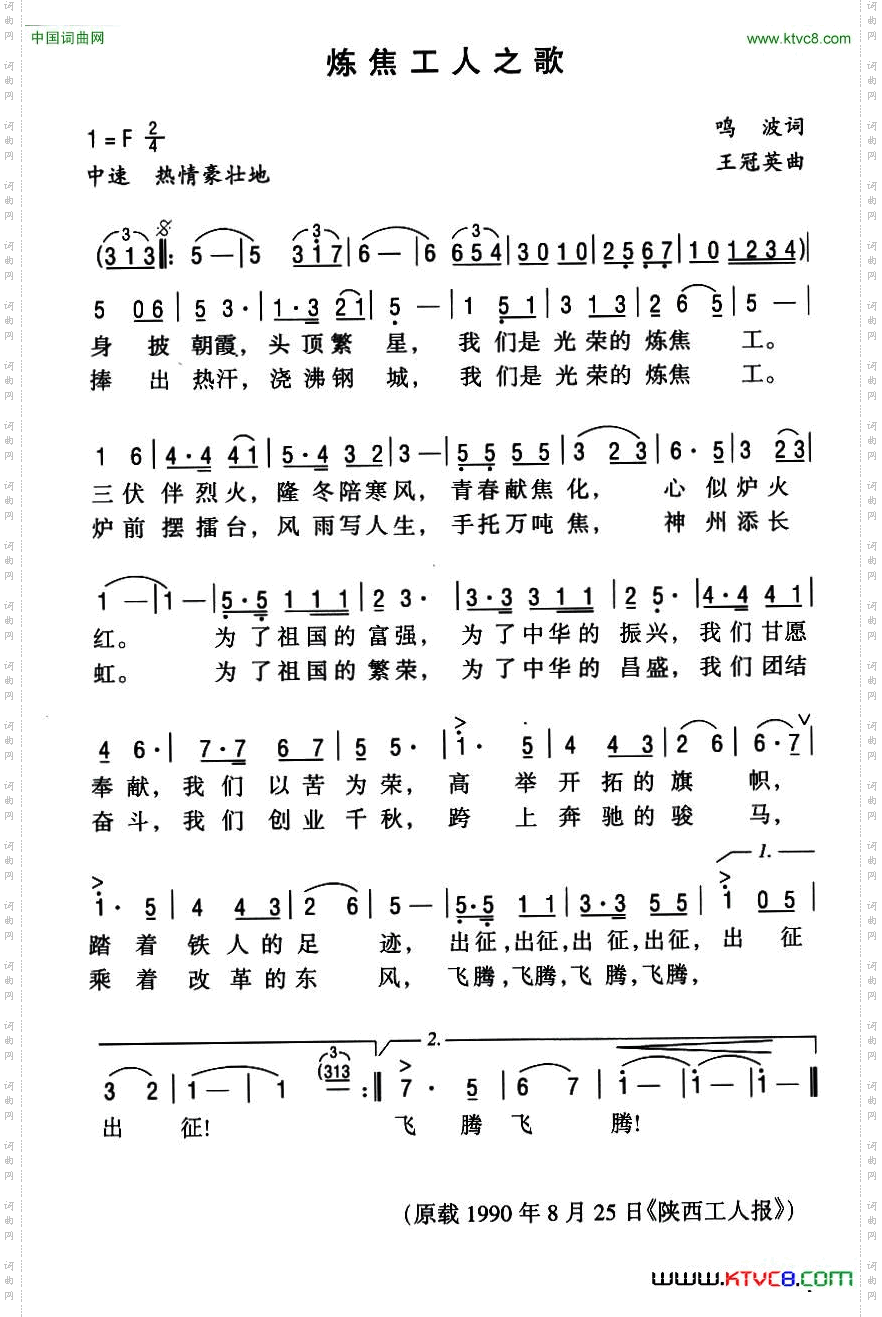 中国词曲网 www.ktvc8.com
炼焦工人之歌
1=F 2/4 鸣 波词
中速 热情豪壮地 王冠英曲
(3 1 3 𝄋 ‖: 5 — | 5 3 1 7 | 6 — | 6 6 5 4 | 3 0 1 0 | 2 5 6 7 | 1 0 1 2 3 4) |
5 0 6 | 5 3· | 1·3 2 1 | 5 — | 1 5 1 | 3 1 3 | 2 6 5 | 5 — |
身 披 朝霞, 头顶繁 星, 我 们是 光荣的 炼焦 工。
捧 出 热汗, 浇沸钢 城, 我 们是 光荣的 炼焦 工。
1 6 | 4·4 4 1 | 5·4 3 2 | 3 — | 5 5 5 5 | 3 2 3 | 6· 5 | 3 2 3 |
三伏 伴烈火, 隆冬陪寒风, 青春献焦化, 心 似炉火
炉前 摆擂台, 风雨写人生, 手托万吨焦, 神 州添长
1 — | 1 — | 5·5 1 1 1 | 2 3· | 3·3 3 1 1 | 2 5· | 4·4 4 1 |
红。 为了祖国的 富强, 为了中华的 振兴, 我们甘愿
虹。 为了祖国的 繁荣, 为了中华的 昌盛, 我们团结
4 6· | 7·7 6 7 | 5 5· | 1· 5 | 4 4 3 | 2 6 | 6·7 |
奉献, 我们 以苦 为荣, 高 举 开 拓的 旗 帜,
奋斗, 我们 创业 千秋, 跨 上 奔 驰的 骏 马,
1.
1· 5 | 4 4 3 | 2 6 | 5 — | 5·5 1 1 | 3·3 5 5 | 1 0 5 |
踏 着 铁 人的 足 迹, 出征, 出征, 出征, 出征, 出 征
乘 着 改 革的 东 风, 飞腾, 飞腾, 飞腾, 飞腾,
2.
3 2 | 1 — | 1 (313 :‖ 7· 5 | 6 7 | 1 — | 1 — | 1 — ‖
出 征! 飞 腾 飞 腾!
(原载1990年8月25日《陕西工人报》)
www.KTVC8.com